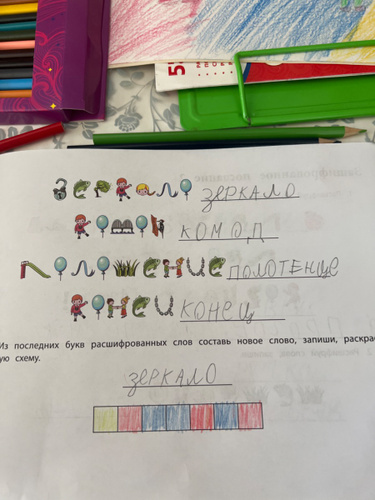 зеркало ЗЕРКАЛО
комод КОМОД
полотенце ПОЛОТЕНЦЕ
конец КОНЕЦ
Из последних букв расшифрованных слов составь новое слово, запиши, раскра
ую схему.
ЗЕРКАЛО